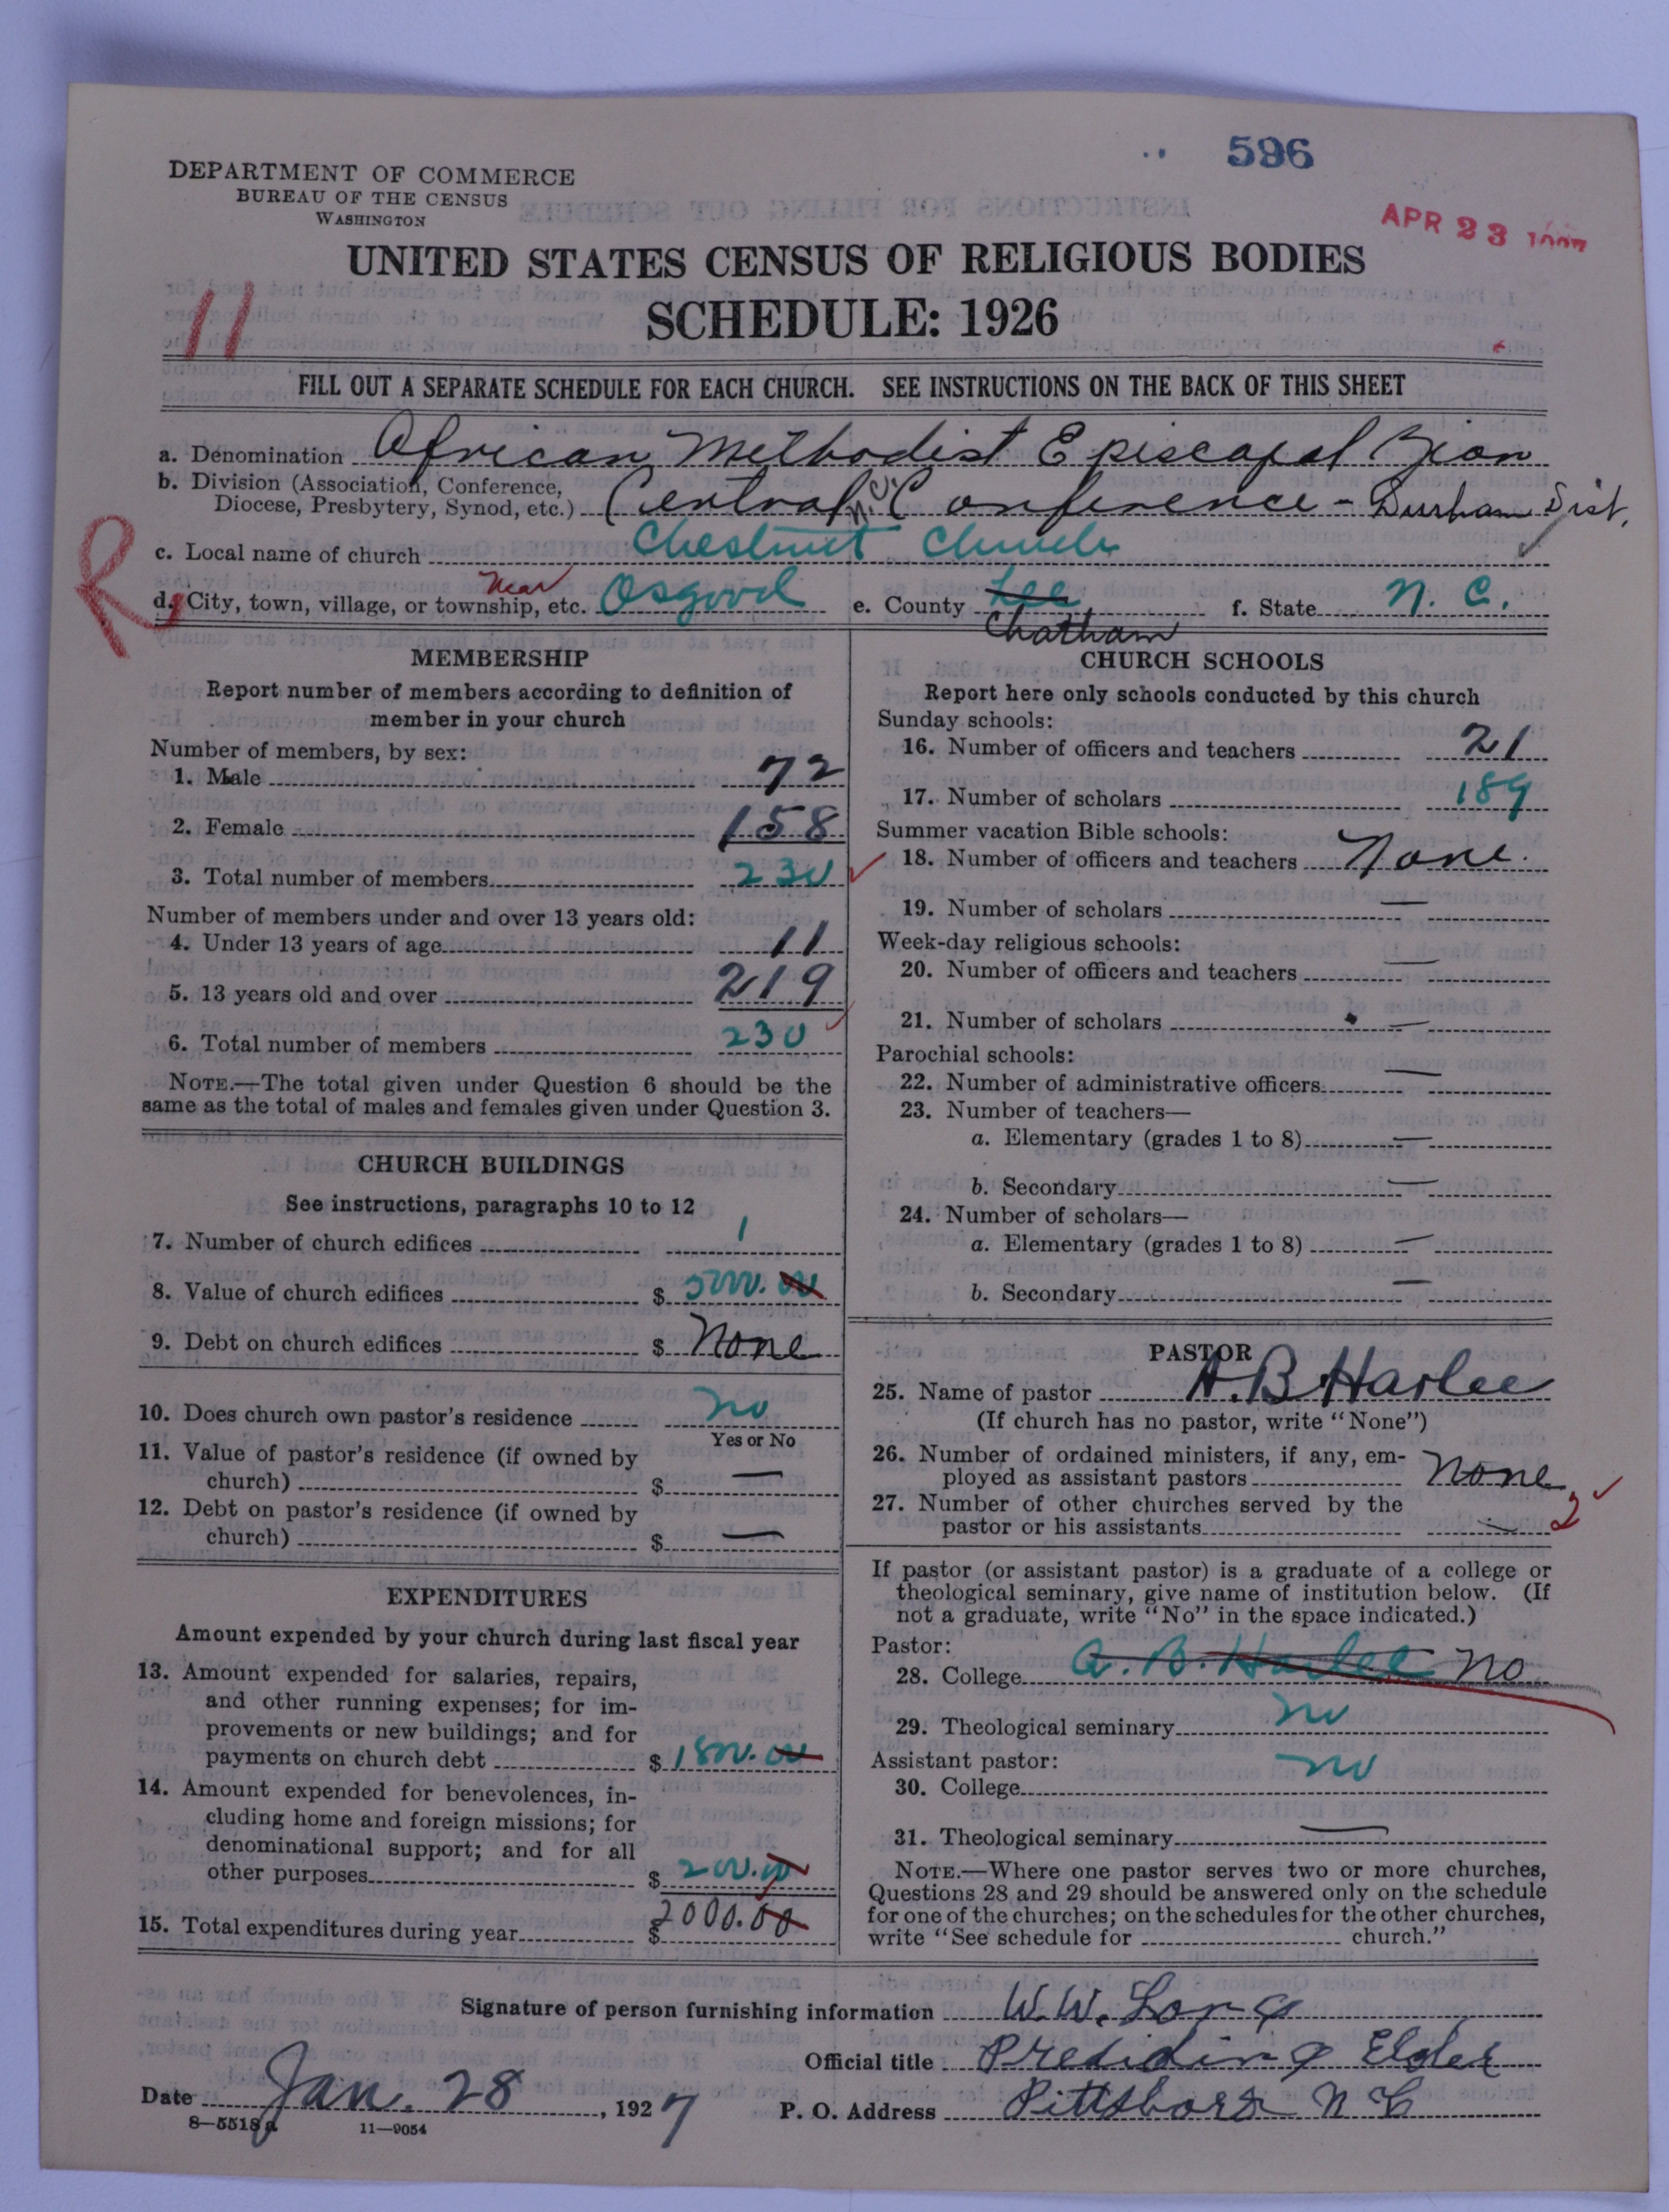 596
APR 23
DEPARTMENT OF COMMERCE
BUREAU OF THE CENSUS
WASHINGTON
UNITED STATES CENSUS OF RELIGIOUS BODIES
11
SCHEDULE: 1926
FILL OUT A SEPARATE SCHEDULE FOR EACH CHURCH. SEE INSTRUCTIONS ON THE BACK OF THIS SHEET
a. Denomination African Methodist Episcopal Zion
b. Division (Association, Conference,
Diocese, Presbytery, Synod, etc.) Central N.C. Conference - Durham Dist.
R
c. Local name of church Chestnut Church
d. City, town, village, or township, etc. Near Osgood e. County Lee Chatham f. State N. C.
MEMBERSHIP
Report number of members according to definition of
member in your church
Number of members, by sex:
1. Male 72
2. Female 158
3. Total number of members 230
Number of members under and over 13 years old:
4. Under 13 years of age 11
5. 13 years old and over 219
6. Total number of members 230
NOTE.—The total given under Question 6 should be the
same as the total of males and females given under Question 3.
CHURCH BUILDINGS
See instructions, paragraphs 10 to 12
7. Number of church edifices 1
8. Value of church edifices $ 5000.00
9. Debt on church edifices $ None
10. Does church own pastor's residence no
Yes or No
11. Value of pastor's residence (if owned by
church) $ —
12. Debt on pastor's residence (if owned by
church) $ —
EXPENDITURES
Amount expended by your church during last fiscal year
13. Amount expended for salaries, repairs,
and other running expenses; for im-
provements or new buildings; and for
payments on church debt $ 1800.00
14. Amount expended for benevolences, in-
cluding home and foreign missions; for
denominational support; and for all
other purposes $ 200.00
15. Total expenditures during year $ 2000.00
CHURCH SCHOOLS
Report here only schools conducted by this church
Sunday schools:
16. Number of officers and teachers 21
17. Number of scholars 189
Summer vacation Bible schools:
18. Number of officers and teachers None.
19. Number of scholars —
Week-day religious schools:
20. Number of officers and teachers —
21. Number of scholars —
Parochial schools:
22. Number of administrative officers —
23. Number of teachers—
a. Elementary (grades 1 to 8) —
b. Secondary —
24. Number of scholars—
a. Elementary (grades 1 to 8) —
b. Secondary —
PASTOR
25. Name of pastor A. B. Harlee
(If church has no pastor, write "None")
26. Number of ordained ministers, if any, em-
ployed as assistant pastors None
27. Number of other churches served by the
pastor or his assistants — 2
If pastor (or assistant pastor) is a graduate of a college or
theological seminary, give name of institution below. (If
not a graduate, write "No" in the space indicated.)
Pastor:
28. College A. B. Harlee No
29. Theological seminary no
Assistant pastor:
30. College no
31. Theological seminary —
NOTE.—Where one pastor serves two or more churches,
Questions 28 and 29 should be answered only on the schedule
for one of the churches; on the schedules for the other churches,
write "See schedule for church."
Signature of person furnishing information W. W. Long
Official title Presiding Elder
Date Jan. 28, 1927 P. O. Address Pittsboro N C
8—5518a 11—9054